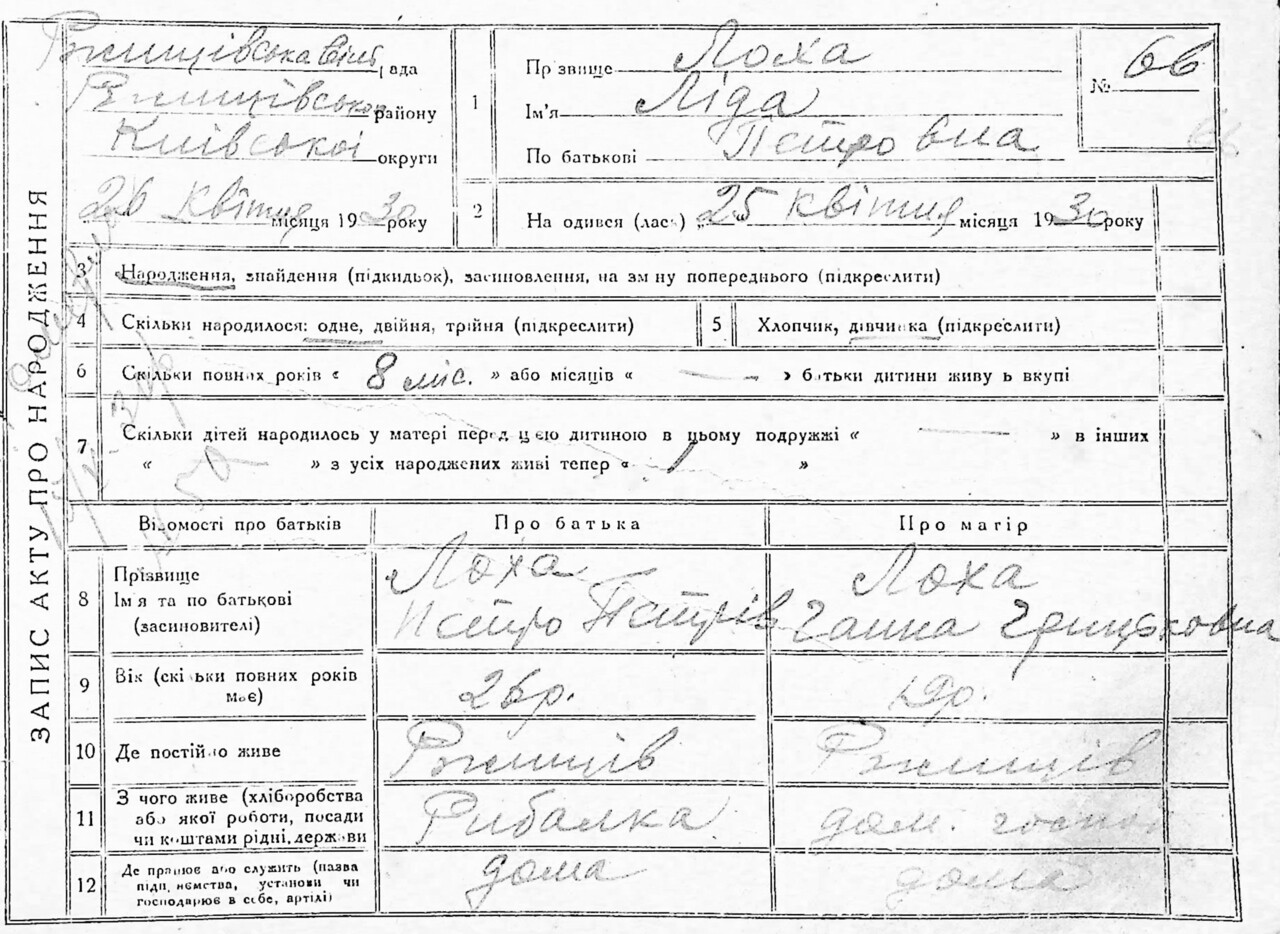 ЗАПИС АКТУ ПРО НАРОДЖЕННЯ
Ржищівська рада
Ржищівського району
Київської округи
26 квітня місяця 1930 року
1
Прізвище Лоха
Ім'я Ліда
По батькові Петровна
№ 66
66
2
На одився (лась) „25 квітня місяця 1930 року
3 Народження, знайдення (підкидьок), засиновлення, на зм ну попереднього (підкреслити)
4 Скільки народилося: одне, двійня, трійня (підкреслити)
5 Хлопчик, дівчинка (підкреслити)
6 Скільки повних років « 8 міс. » або місяців « — » батьки дитини живу ь вкупі
7 Скільки дітей народилось у матері перед цією дитиною в цьому подружжі « — » в інших
« — » з усіх народжених живі тепер « 1 »
Відомості про батьків Про батька Про матір
8 Прізвище Лоха Лоха
Ім я та по батькові Петро Петрів Ганна Грицьковна
(засиновителі)
9 Вік (скільки повних років 26р.
має)
10 Де постійно живе Ржищів Ржищів
11 З чого живе (хліборобства
або якої роботи, посади Рибалка дом. господ
чи коштами рідні, держави
12 Де працює або служить (назва дома дома
підп. иємства, установи чи
господарює в себе, артілі)